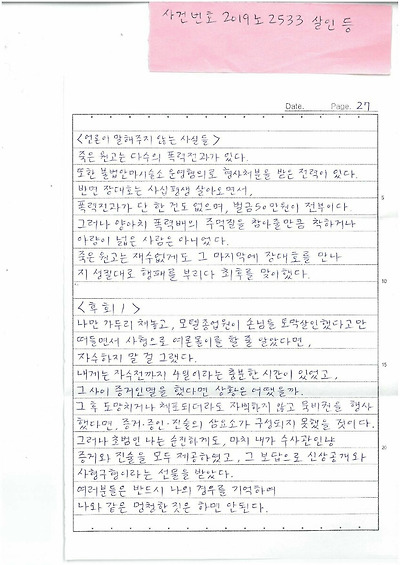 사건번호 2019노2533 살인 등
Date. Page. 27
<언론이 말해주지 않는 사실들>
죽은 원고는 다수의 폭력전과가 있다.
또한 불법안마시술소 운영혐의로 형사처분을 받은 전력이 있다.
반면 장대호는 사십평생 살아오면서,
폭력전과가 단 한 건도 없으며, 벌금50만원이 전부이다.
그러나 양아치 폭력배의 주먹질을 참아줄만큼 착하거나
아량이 넓은 사람은 아니었다.
죽은 원고는 재수없게도 그 마지막에 장대호를 만나
지 성질대로 행패를 부리다 최후를 맞이했다.
5
10
<후회 1>
나만 가두리 쳐놓고, 모텔종업원이 손님을 토막살인했다고만
떠들면서 사형으로 여론몰이를 할 줄 알았다면,
자수하지 말 걸 그랬다.
내게는 자수전까지 4일이라는 충분한 시간이 있었고,
그 사이 증거인멸을 했다면 상황은 어땠을까.
그 후 도망치거나 체포되더라도 자백하지 않고 묵비권을 행사
했다면, 증거·증인·진술의 삼요소가 구성되지 못했을 것이다.
그러나 초범인 나는 순진하게도, 마치 내가 수사관인냥
증거와 진술을 모두 제공하였고, 그 보답으로 신상공개와
사형구형이라는 선물을 받았다.
여러분들은 반드시 나의 경우를 기억하여
나와 같은 멍청한 짓은 하면 안된다.
15
20